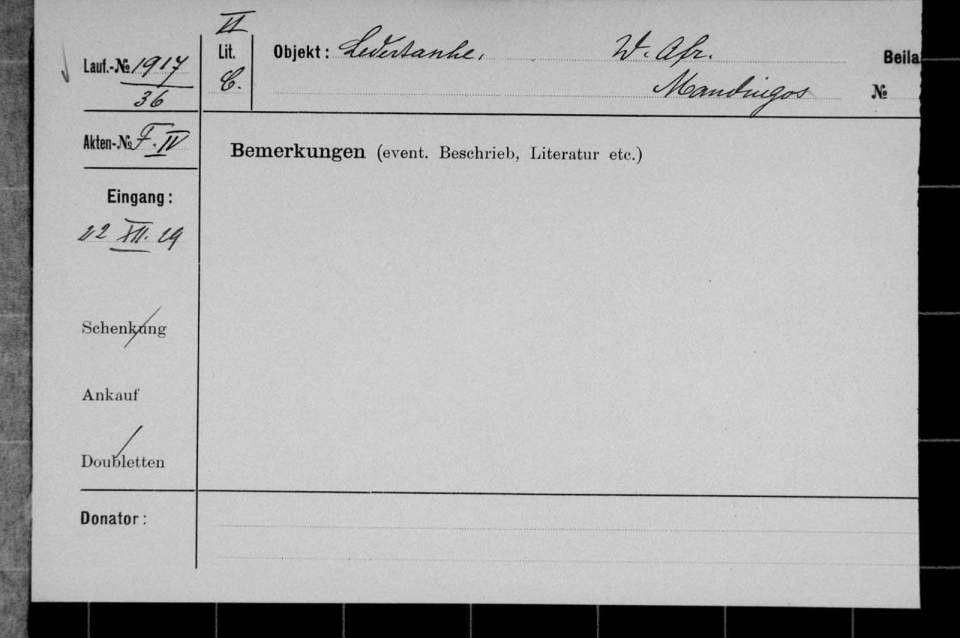 II
Lauf.-№ 1917
36
Lit. C.
Objekt: Ledertasche, W. Afr.
Mandingos
Beila
№
Akten-№ F. IV
Bemerkungen (event. Beschrieb, Literatur etc.)
Eingang:
22 XII. 29
Schenkung
Ankauf
Doubletten
Donator: